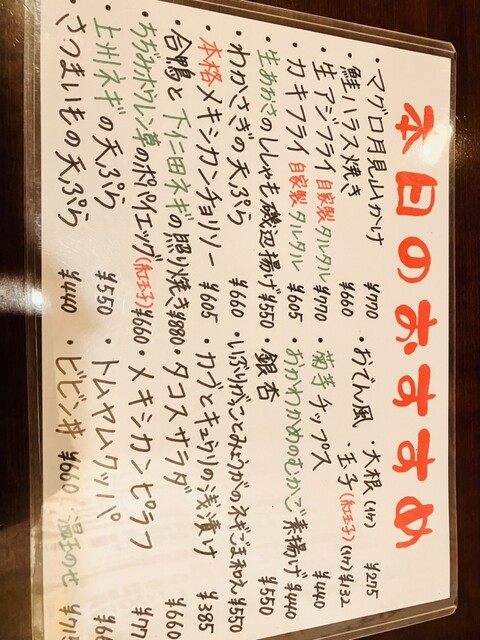 本日のおすすめ
・マグロ月見山かけ ¥770
・鮭ハラス焼き ¥660
・生アジフライ 自家製タルタル ¥770
・カキフライ 自家製タルタル ¥605
・生あおさのししゃも磯辺揚げ ¥550
・わかさぎの天ぷら ¥660
・本格メキシカンチョリソー ¥605
・合鴨と下仁田ネギの照り焼き ¥880
・ちぢみホウレン草のポパイエッグ(紅玉子) ¥660
・上州ネギの天ぷら ¥550
・さつまいもの天ぷら ¥440
・おでん風 ・大根(1ケ) ¥275
・玉子(紅玉子)(1ケ) ¥132
・菊芋チップス ¥440
・おかわかめのむかご素揚げ ¥440
・銀杏 ¥550
・いぶりがことみょうがのネギごま和え ¥550
・カブとキュウリの浅漬け ¥385
・タコスサラダ ¥660
・メキシカンピラフ
・トムヤムクッパ
・ビビン丼 ¥660 温玉のせ